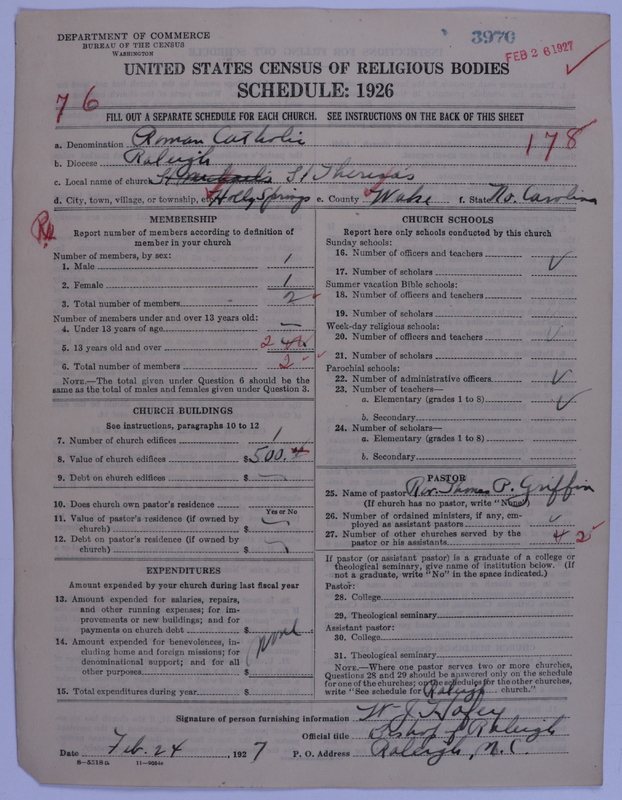 DEPARTMENT OF COMMERCE
BUREAU OF THE CENSUS
WASHINGTON
3970
FEB 26 1927
UNITED STATES CENSUS OF RELIGIOUS BODIES
SCHEDULE: 1926
76
FILL OUT A SEPARATE SCHEDULE FOR EACH CHURCH. SEE INSTRUCTIONS ON THE BACK OF THIS SHEET
178
a. Denomination Roman Catholic
b. Diocese Raleigh
c. Local name of church St Michael's St Theresa's
d. City, town, village, or township, etc. Holly Springs e. County Wake f. State No. Carolina
MEMBERSHIP
Report number of members according to definition of
member in your church
Number of members, by sex:
1. Male 1
2. Female 1
3. Total number of members 2
Number of members under and over 13 years old:
4. Under 13 years of age —
5. 13 years old and over 2
6. Total number of members 2
NOTE.—The total given under Question 6 should be the
same as the total of males and females given under Question 3.
CHURCH BUILDINGS
See instructions, paragraphs 10 to 12
7. Number of church edifices 1
8. Value of church edifices $500.
9. Debt on church edifices $
10. Does church own pastor's residence
Yes or No
11. Value of pastor's residence (if owned by
church) $
12. Debt on pastor's residence (if owned by
church) $
EXPENDITURES
Amount expended by your church during last fiscal year
13. Amount expended for salaries, repairs,
and other running expenses; for im-
provements or new buildings; and for
payments on church debt $
none
14. Amount expended for benevolences, in-
cluding home and foreign missions; for
denominational support; and for all
other purposes $
15. Total expenditures during year $
CHURCH SCHOOLS
Report here only schools conducted by this church
Sunday schools:
16. Number of officers and teachers
17. Number of scholars
Summer vacation Bible schools:
18. Number of officers and teachers
19. Number of scholars
Week-day religious schools:
20. Number of officers and teachers
21. Number of scholars
Parochial schools:
22. Number of administrative officers
23. Number of teachers—
a. Elementary (grades 1 to 8)
b. Secondary
24. Number of scholars—
a. Elementary (grades 1 to 8)
b. Secondary
PASTOR
25. Name of pastor Rev. Thomas P. Griffin
(If church has no pastor, write "None")
26. Number of ordained ministers, if any, em-
ployed as assistant pastors
27. Number of other churches served by the
pastor or his assistants 4 2
If pastor (or assistant pastor) is a graduate of a college or
theological seminary, give name of institution below. (If
not a graduate, write "No" in the space indicated.)
Pastor:
28. College
29. Theological seminary
Assistant pastor:
30. College
31. Theological seminary
NOTE.—Where one pastor serves two or more churches,
Questions 28 and 29 should be answered only on the schedule
for one of the churches; on the schedules for the other churches,
write "See schedule for Raleigh church."
Signature of person furnishing information W. J. Hafey
Official title Bishop of Raleigh
Date Feb. 24, 1927 P. O. Address Raleigh, N.C.